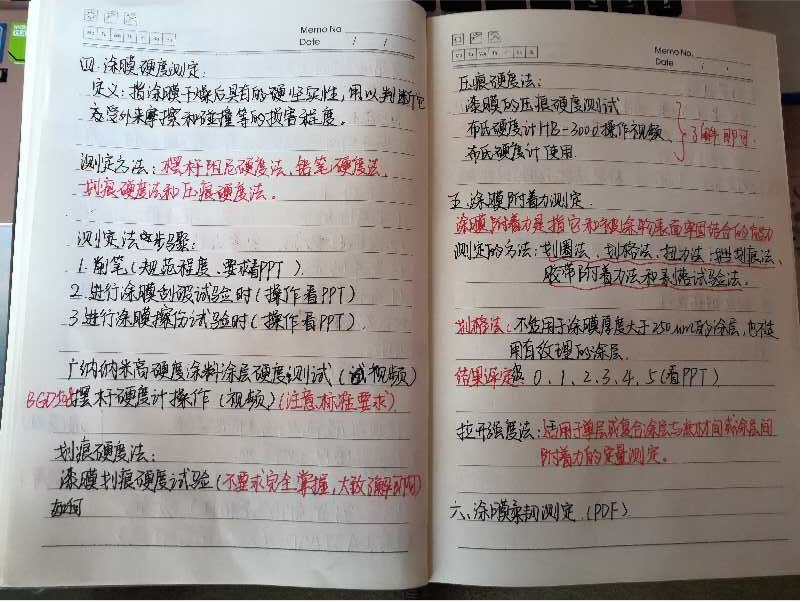 Memo No.
Date / /
四.涂膜硬度测定.
定义:指涂膜干燥后具有的硬坚实性,用以判断它
在受外来摩擦和碰撞等的损害程度。
测定方法:摆杆阻尼硬度法、铅笔硬度法、
划痕硬度法和压痕硬度法。
测定法步骤:
1.削笔(规范程度、要求看PPT)
2.进行涂膜刮破试验时(操作看PPT)
3.进行涂膜擦伤试验时(操作看PPT)
广纳纳米高硬度涂料涂层硬度测试(视频)
BGD摆杆硬度计操作(视频)(注意、标准要求)
划痕硬度法:
漆膜划痕硬度试验(不要求完全掌握,大致了解即可)
如何
Memo No.
Date / /
压痕硬度法:
漆膜的压痕硬度测试
布氏硬度计HB-3000操作视频 了解即可
布氏硬度计使用
五.涂膜附着力测定.
涂膜附着力是指它和被涂物表面牢固结合的能力
测定的方法:划圈法、划格法、扭力法、划痕法、
胶带附着力法和剥落试验法。
划格法:不能用于涂膜厚度大于250μm的涂层,也不适
用有纹理的涂层.
结果评定 0、1、2、3、4、5(看PPT)
拉开强度法:适用于单层或复合涂层与底材间或涂层间
附着力的定量测定。
六、涂膜柔韧测定.(PDF)